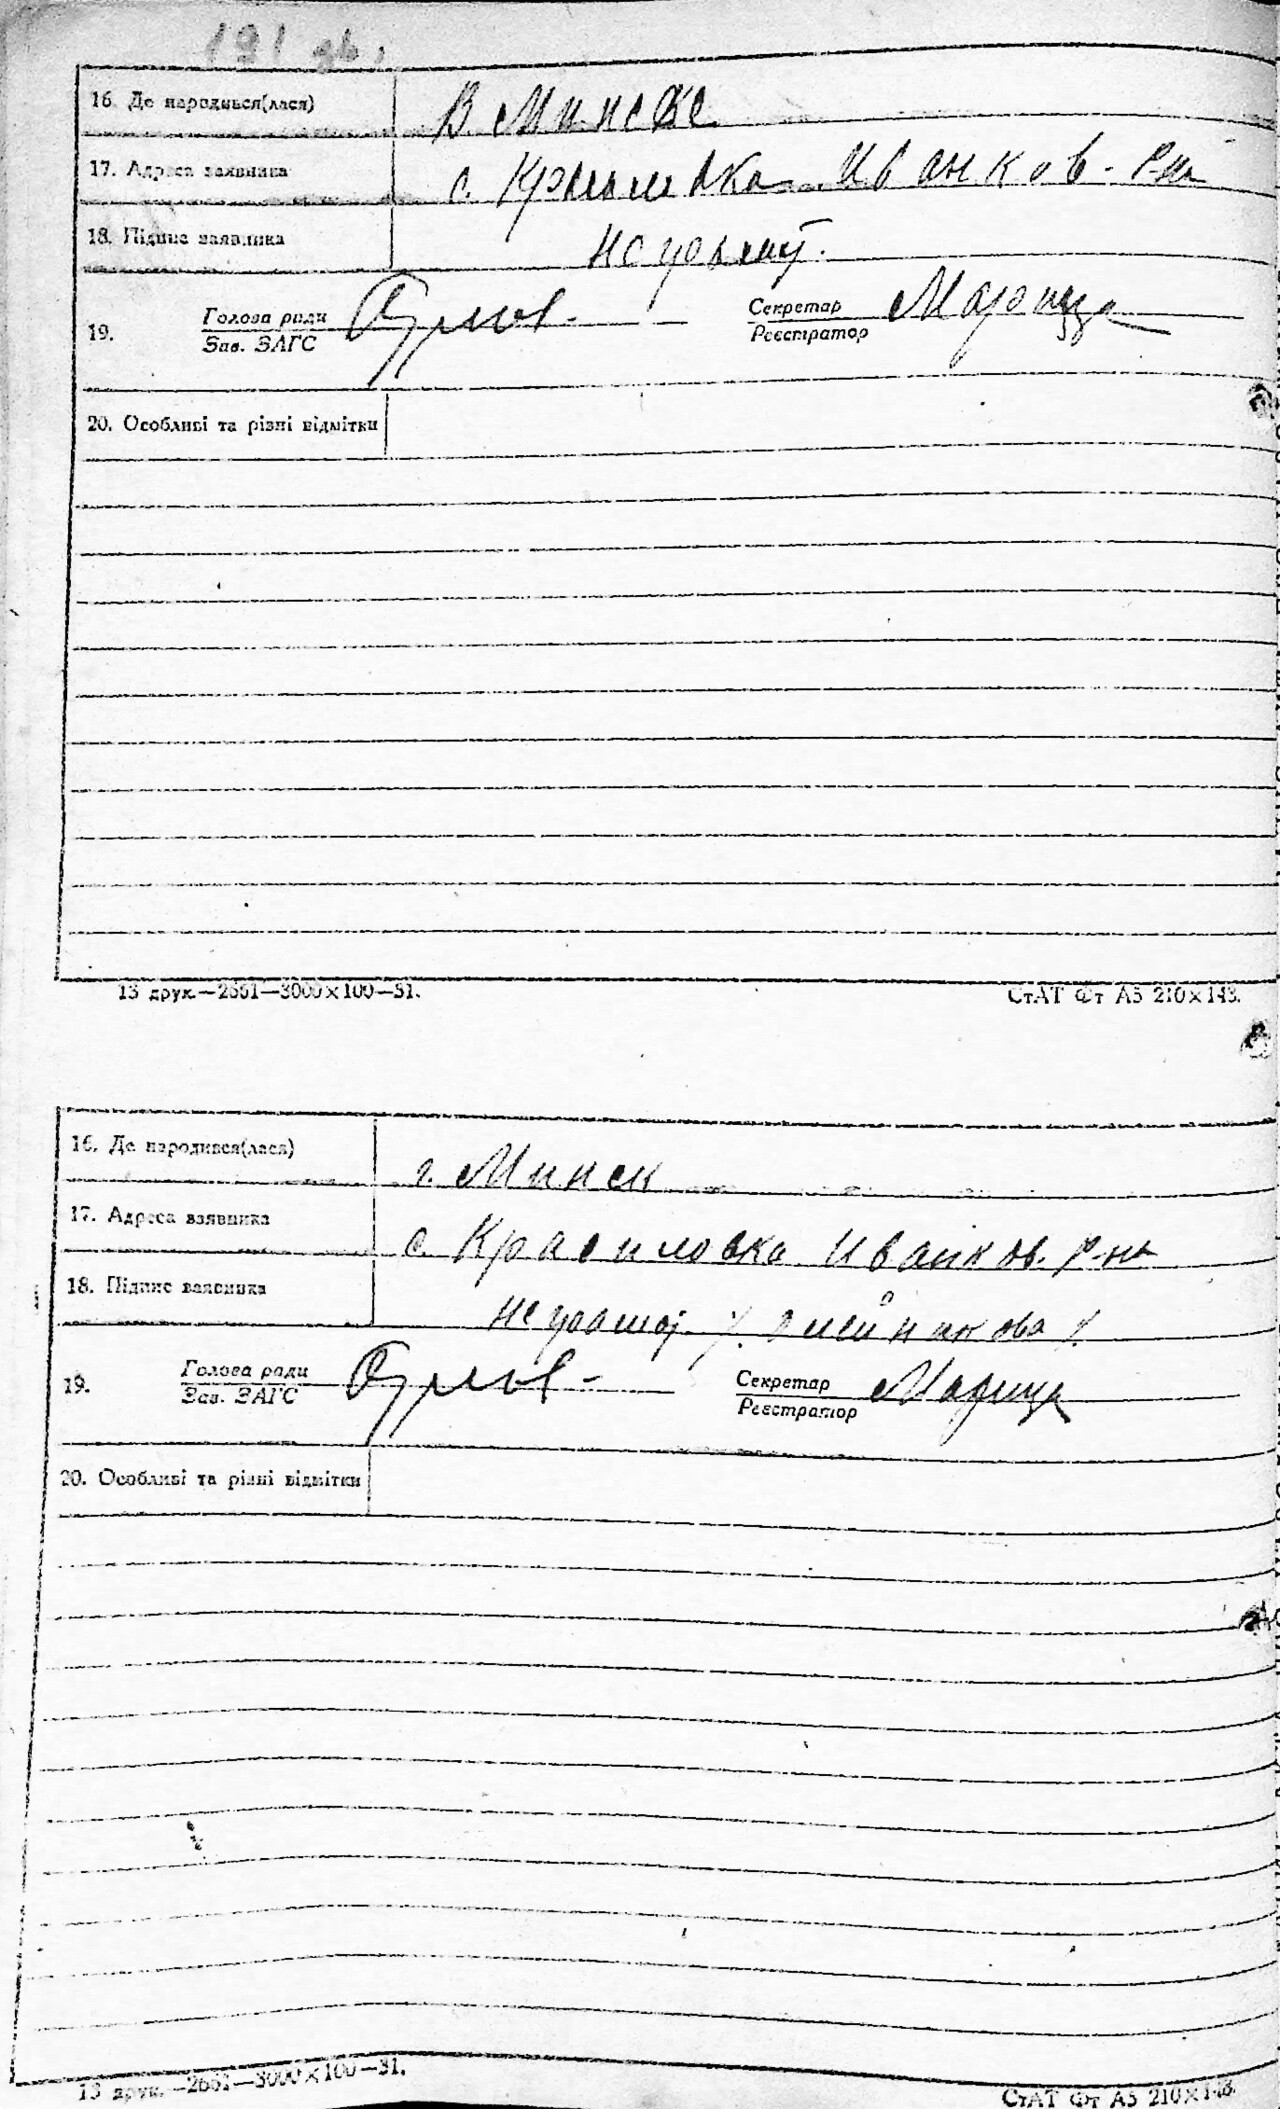 191 зв.
16. Де народився(лася) В Минске
17. Адреса заявника с. Иванков. р-на
18. Підпис заявника
19. Голова ради Секретар
Зав. ЗАГС Реєстратор
20. Особливі та різні відмітки
13 друк.—2661—3000×100—31. СтАТ Фт А5 210×148.
16. Де народився(лася) г. Минск
17. Адреса заявника с. Красиловка Иванков. р-на
18. Підпис заявника
19. Голова ради Секретар
Зав. ЗАГС Реєстратор
20. Особливі та різні відмітки
13 друк.—2661—3000×100—31. СтАТ Фт А5 210×148.